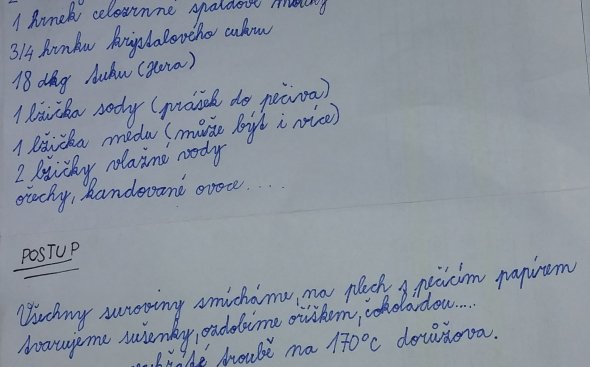 1 hrnek celozrnné špaldové mouky
3/4 hrnku krystalového cukru
18 dkg tuku (Hera)
1 lžička sody (prášek do pečiva)
1 lžička medu (může být i více)
2 lžičky vlažné vody
ořechy, kandované ovoce.....
POSTUP
Všechny suroviny smícháme, na plech s pečícím papírem
tvarujeme sušenky, ozdobíme oříškem, čokoládou....
troubě na 170°C dorůžova.